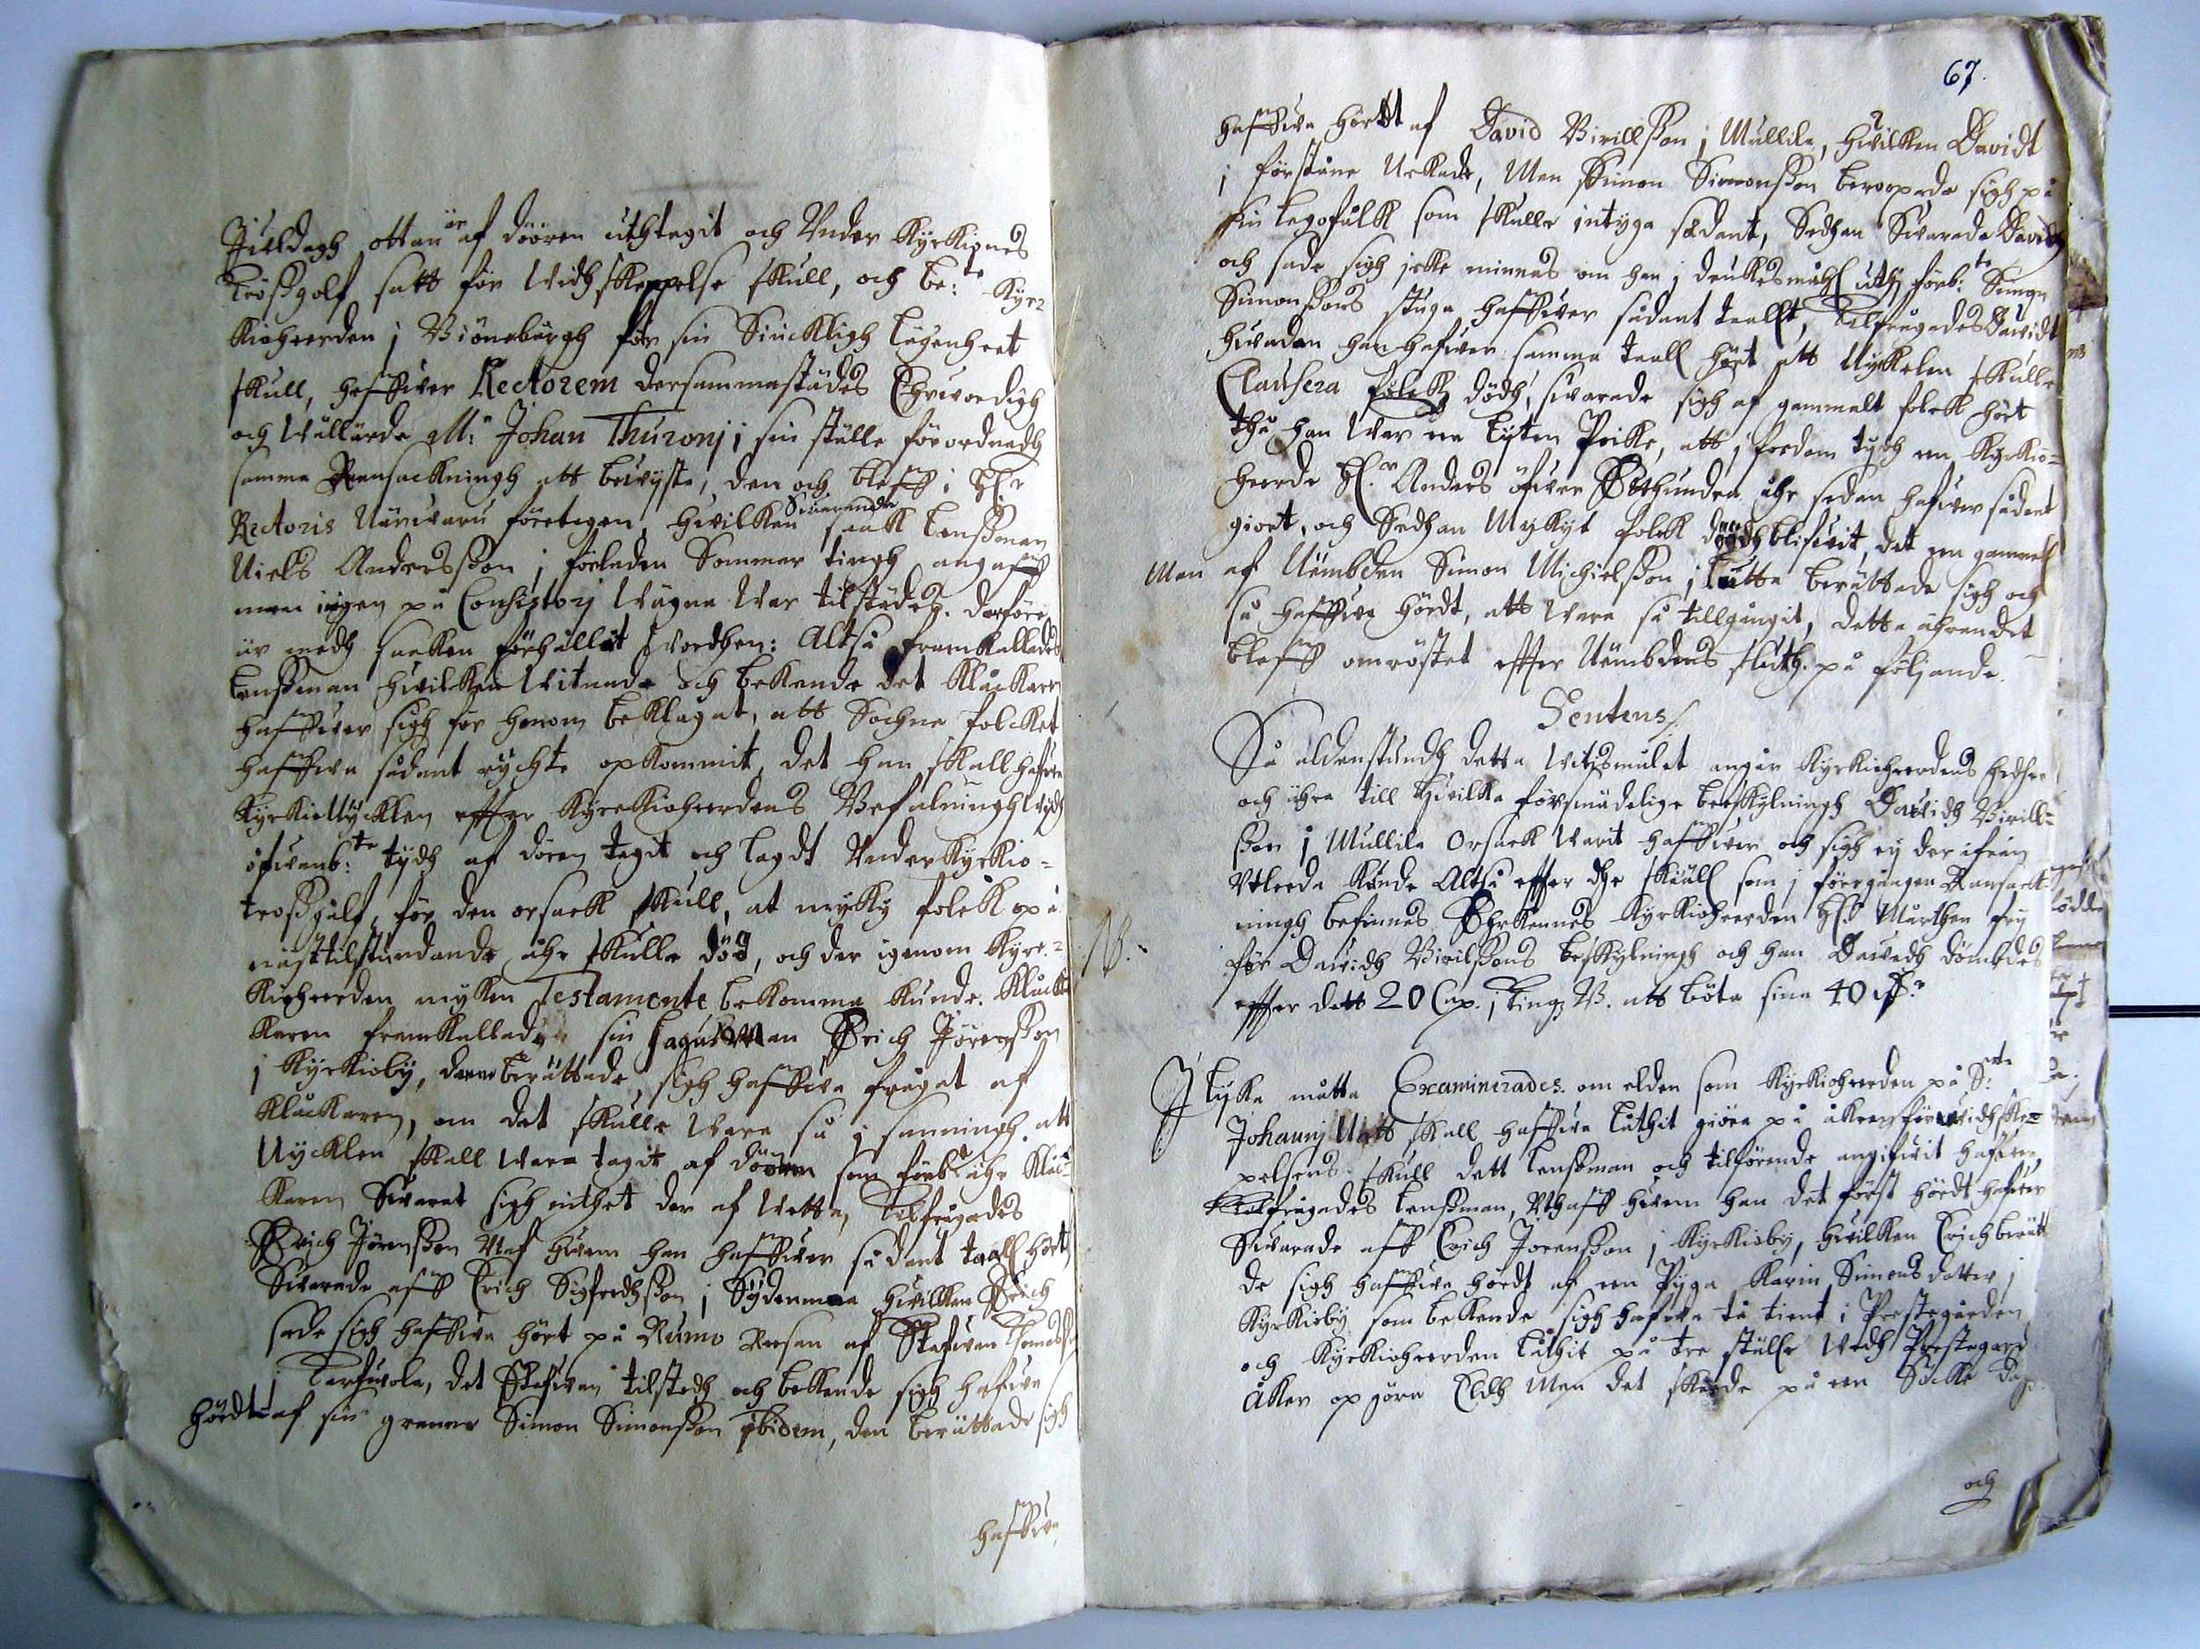 Juldagh ottan är af dören uthtagit och Under Kyrkiones
tröskgolf satt för Widhskeppelse skull, och be:te Kyr-
kioheerden i Biörneburgh för sin Siuckligh lägenheet
skull, haffwer Rectorem dersammastädes Ehrwördigh
och Wällärde Mr Johan Thuronj i sin ställe förordnadh
samma Ransackningh att bewijsta, den och bleff i H:r
Rectoris Närwaru företagen, hwilken Swarande saak Lensman
Niels Andersson i förleden Sommar tingh angaff
men ingen på Consistorij Wägna War tilstädes. derföre
är medh saken förhållit Wordhen: Altså framkallades
Lensman hwilken Witnade och bekende det Klåckaren
haffwer sigh för honom beklagat, att Sochne folcket
haffwa sådant rychte opkommit, det han skall hafwa
KyrkieNycklen effter Kyrckioheerdens Befalningh widh
ofwanb:te tijdh af dören tagit och lagdt Under Kyrkio-
tröskgålf, för den orsack skull, at myky folck på
näst tilstundande åhr skulle döö, och der igenom Kyrc-
kioheerden myken Testamente bekomma kunde. Klåc-
karen framkallade sin sagusman Erich Jörensson
i Kyrkioby, denne berättade sigh haffwa frågat af
Klåckaren, om det skulle Wara så i sanningh att
Nycklen skall wara tagit af dören som förb:t ähr Klåc-
karen Swarat sigh inthet der af Wetta, Tilfrågades
Erich Jörensson Utaf hwem han haffwer sådant taall hört,
Swarade aff Erich Sigfredhsson i Södermaa hwilken Erich
sade sigh haffwa hört på Rumo Reesan af Staffan Thomasson
i Lerhwola, det Staffwan tilstodh och bekende sigh hafwa
hördt af sin granne Simon Simonsson ibidem, den berättade sigh
haffwa
67.
haffwa hördt af David Birillsson i Mullila, hwilken Davidt
i förstone Nekade, Men Simon Simonsson beroopade sigh på
sin legofålk som skulle intyga sådant, Sedhan Swarade Davidh
och sade sigh icke minnas om han i dryckesmåhl uthj förb:te Simon
Simonssons stuga haffwer sådant taallt, Tilfrågades Davidt
hwadan han hafwer samma taall hört att Nyckelen skulle
Clausera folck dödh, swarade sigh af gammalt folck hört
thå han War en lijten Poike, att i fordom tydh en Kyrkio-
heerde H:r Anders öfwer Otthundra åhr sedan hafwer sådant
giort, och Sedhan Myckyt folck dödh blifwit, det en gammal
Man af Nämbden Simon Michielsson i Lutta berättade sigh och
så haffwa hördt, att Wara så tillgångit, detta ährendet
bleff omröstet effter Nämbdens sluth. på föliande.
Sentens
Så aldenstundh detta Witismålet angår Kyrkioheerdens hedher
och ähra till hwilka försmädelige beskylningh Davidh Birill-
sson i Mullila orsack Warit haffwer och sigh ey der ifrån
Utleeda kunde Altså effter the skiäll som i föregången Ransack-
ningh befinnes Erkennes Kyrkioheerden H:r Mårthen frij
NB. för Davidh Birilssons beskylningh och han Davidh dömbdes
effter dett 20 Cap. i Tingz B. att böta sina 40 m:r
I lijka måtta Examinerades. om elden som Kyrkioheerden på S:te
Johannj Natt skall haffwa låthit giöra på åkren för widhske-
pelsens skull dett Lensman och tilförende angifwit hafwer
Tilfrågades Lensman, Uthaff hwem han det först hördt hafwer
Swarade aff Erich Jörensson i Kyrkioby, hwilken Erich berätta-
de sigh haffwa hördt af een Pyga Karin Simons dotter i
Kyrkioby som bekende sigh hafwa tå tient i Prestegården
och Kyrkioheerden låthit på tre ställe Widh Prestegårds
åker opgöra Eldh Men det skedde på een Söcke dagh
och